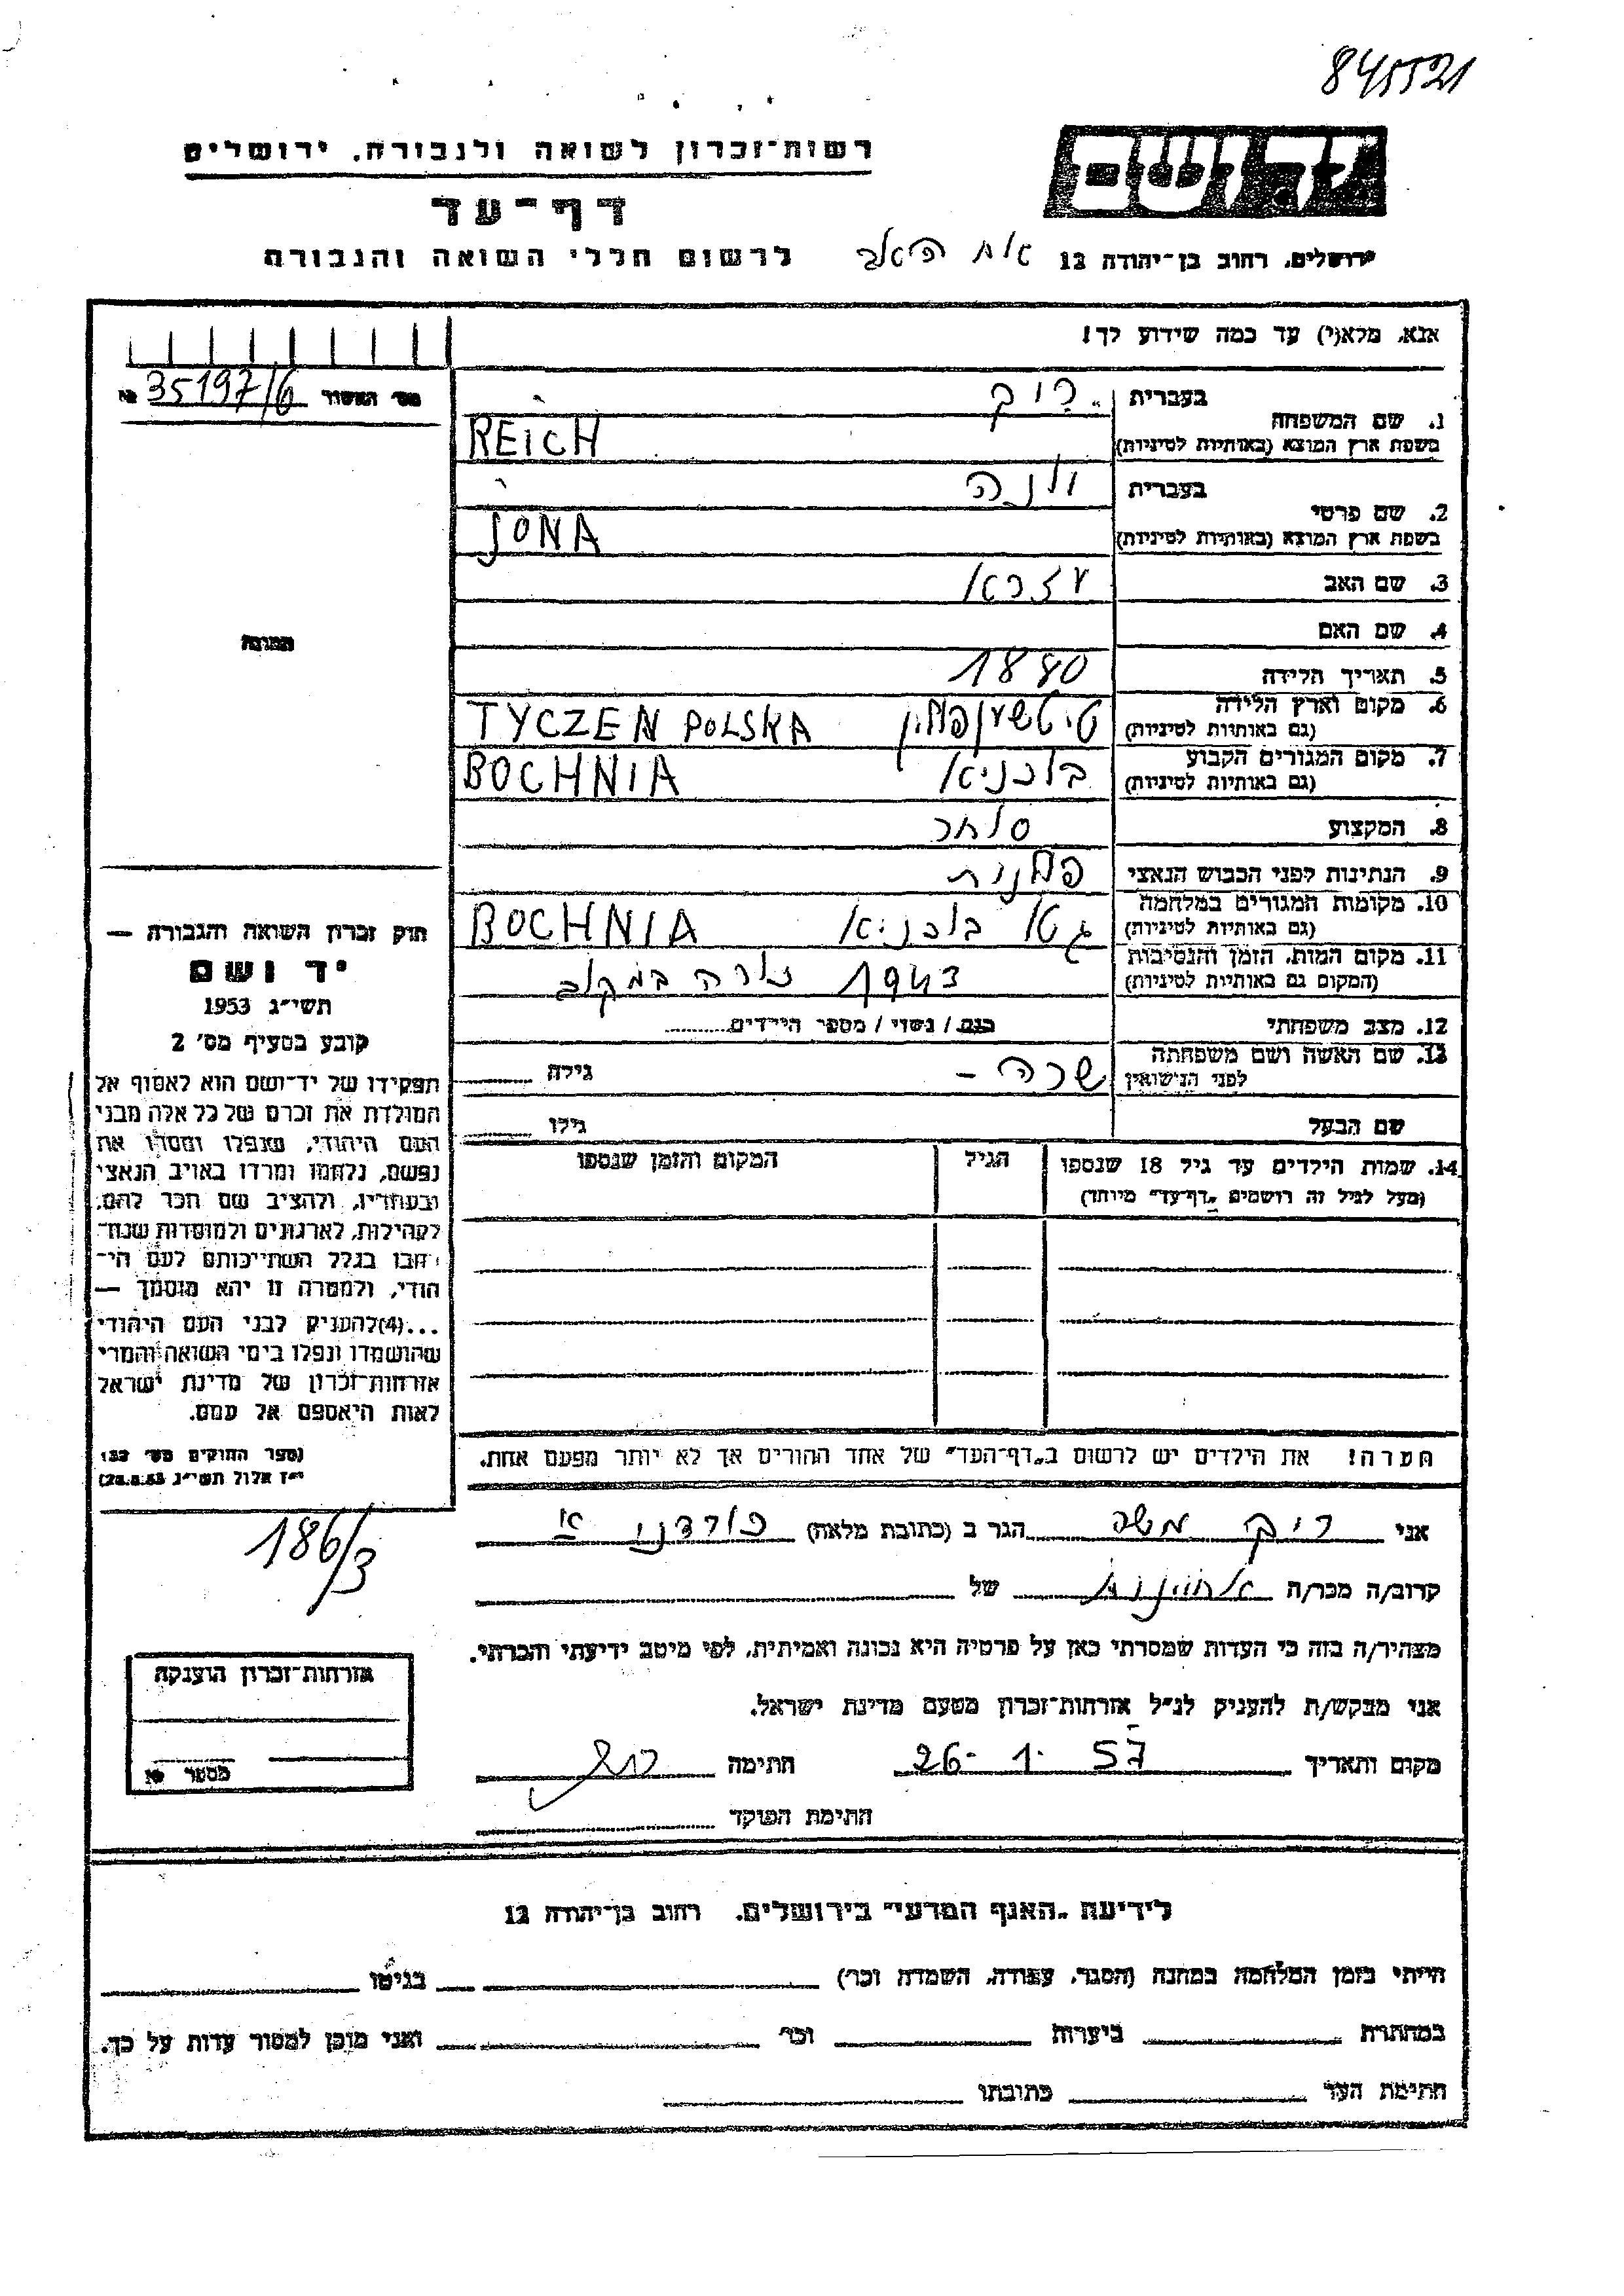 845521
רשות־זכרון לשואה ולגבורה, ירושלים
יד ושם
דף־עד
לרשום חללי השואה והגבורה
ירושלים, רחוב בן־יהודה 12
אנא, מלא(י) עד כמה שידוע לך!
מס׳ האשור № 35197/6
1. שם המשפחה בעברית רייך
בשפת ארץ המוצא (באותיות לטיניות) REICH
2. שם פרטי בעברית יונה
בשפת ארץ המוצא (באותיות לטיניות) JONA
3. שם האב עזרא
4. שם האם
תמונה
5. תאריך הלידה 1880
6. מקום וארץ הלידה (גם באותיות לטיניות) טיטשין פולין TYCZEN POLSKA
7. מקום המגורים הקבוע (גם באותיות לטיניות) בוכניא BOCHNIA
8. המקצוע סוחר
9. הנתינות לפני הכבוש הנאצי פולנית
10. מקומות המגורים במלחמה (גם באותיות לטיניות) גטו בוכניא BOCHNIA
11. מקום המות, הזמן והנסיבות (המקום גם באותיות לטיניות) 1943 נורה במקום
12. מצב משפחתי רווק / נשוי / מספר הילדים
13. שם האשה ושם משפחתה לפני הנישואין שרה – גילה
שם הבעל גילו
14. שמות הילדים עד גיל 18 שנספו הגיל המקום והזמן שנספו
(מעל לגיל זה רושמים „דף־עד״ מיוחד)
חוק זכרון השואה והגבורה —
יד ושם
תשי״ג 1953
קובע בסעיף מס׳ 2
תפקידו של יד־ושם הוא לאסוף אל
המולדת את זכרם של כל אלה מבני
העם היהודי, שנפלו ומסרו את
נפשם, נלחמו ומרדו באויב הנאצי
ובעוזריו, ולהציב שם וזכר להם,
לקהילות, לארגונים ולמוסדות שנח־
רבו בגלל השתייכותם לעם הי־
הודי, ולמטרה זו יהא מוסמך —
...(4)להעניק לבני העם היהודי
שהושמדו ונפלו בימי השואה והמרי
אזרחות־זכרון של מדינת ישראל
לאות היאספם אל עמם.
(ספר החוקים מס׳ 132
י״ז אלול תשי״ג 28.8.53)
הערה! את הילדים יש לרשום ב„דף־העד״ של אחד ההורים אך לא יותר מפעם אחת.
אני רייך משה הגר ב (כתובת מלאה)
186/3
קרוב/ה מכר/ה של
מצהיר/ה בזה כי העדות שמסרתי כאן על פרטיה היא נכונה ואמיתית, לפי מיטב ידיעתי והכרתי.
אני מבקש/ת להעניק לנ״ל אזרחות־זכרון מטעם מדינת ישראל.
מקום ותאריך 26-1-57 חתימה
חתימת הפוקד
אזרחות־זכרון הוענקה
מספר №
לידיעת „האגף המדעי״ בירושלים, רחוב בן־יהודה 12
הייתי בזמן המלחמה במחנה (הסגר, עבודה, השמדה וכו׳) בגיטו
במחתרת ביערות וכו׳ ואני מוכן למסור עדות על כך.
חתימת העד כתובתו